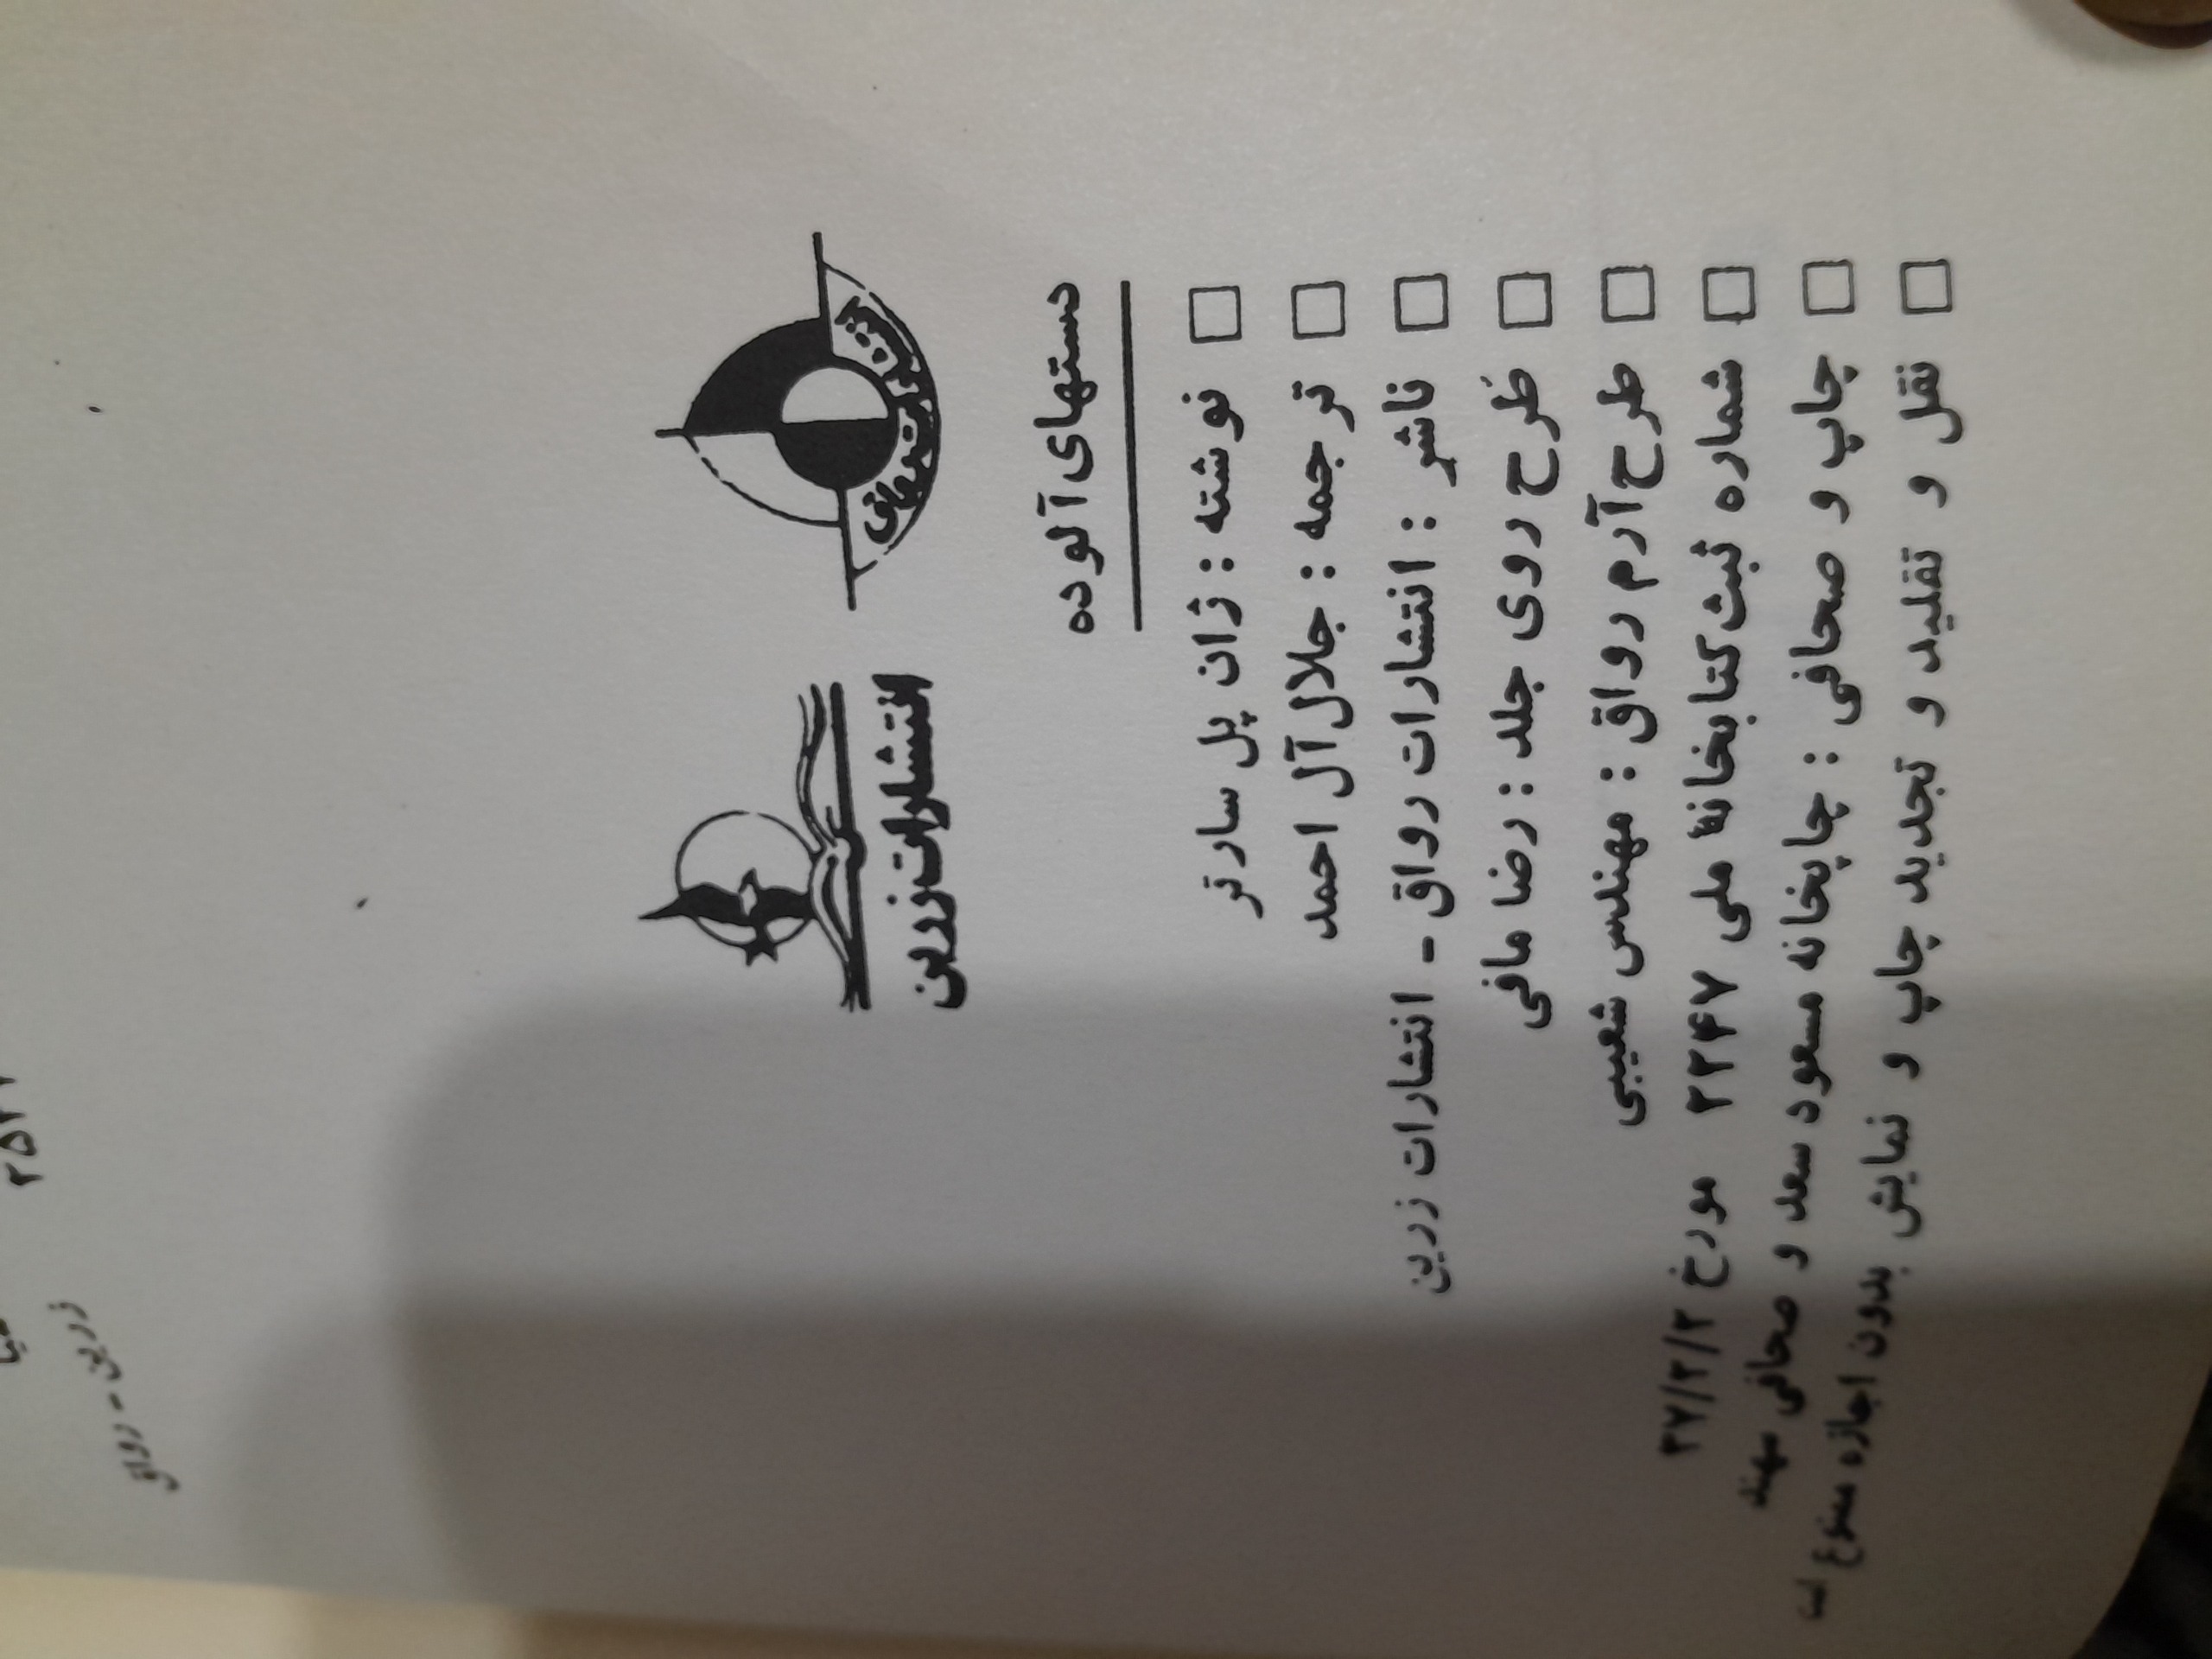 انتشارات رواق
انتشارات زرین
دستهای آلوده
□ نوشته : ژان پل سارتر
□ ترجمه : جلال آل احمد
□ ناشر : انتشارات رواق - انتشارات زرین
□ طرح روی جلد : رضا مافی
□ طرح آرم رواق : مهندس شعیبی
□ شماره ثبت کتابخانهٔ ملی ۲۲۴۷ مورخ ۳۷/۲/۲
□ چاپ و صحافی : چاپخانه مسعود سعد و صحافی مهند
□ نقل و تقلید و تجدید چاپ و نمایش بدون اجازه ممنوع است
زرین - رواق